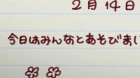 2月14日
今日はみんなとあそびまし